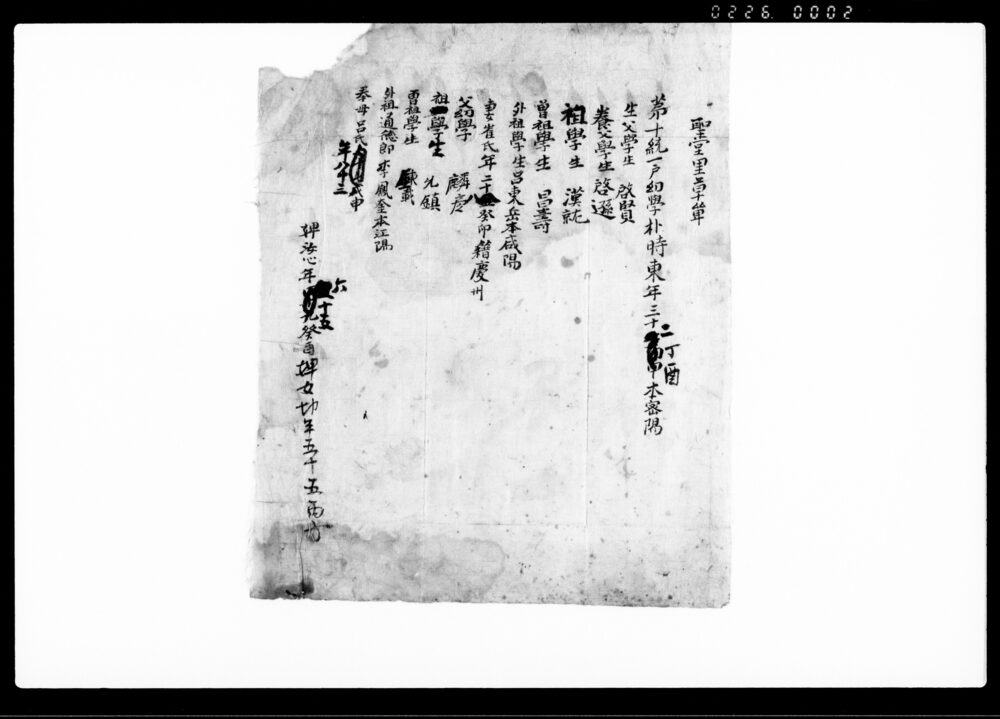 0226. 0002
聖臺里草單
第十統一戶幼學朴時東年三十二丁酉本密陽
生父學生 啓賢
養父學生啓遜
祖學生 漢就
曾祖學生 昌壽
外祖學生呂東岳本咸陽
妻崔氏年二十八癸卯籍慶州
父幼學 麟彦
祖學生 光鎮
曾祖學生
外祖通德郎李鳳奎本江陽
奉母呂氏 戊申
年八十三
婢汝心年六十五癸酉婢女年五十五丙